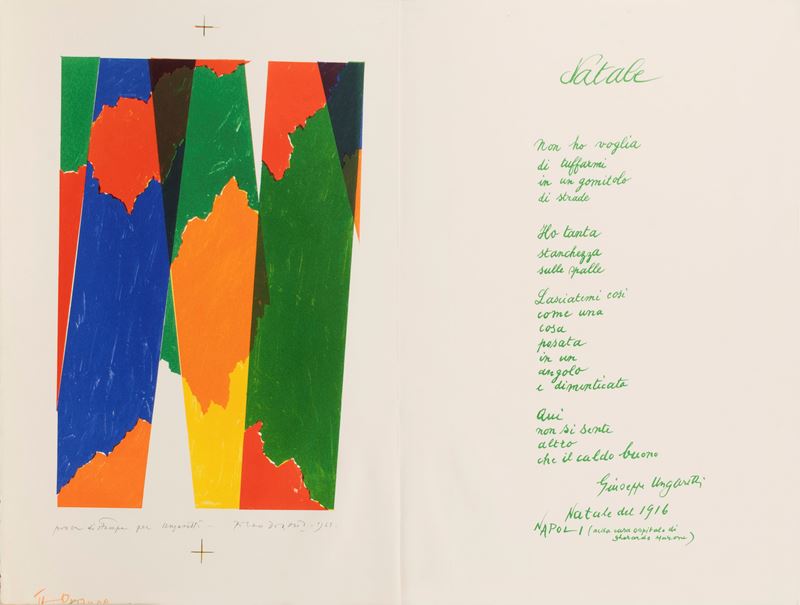 prova di stampa per Ungaretti - Piero Dorazio 1967
Natale
Non ho voglia
di tuffarmi
in un gomitolo
di strade
Ho tanta
stanchezza
sulle spalle
Lasciatemi così
come una
cosa
posata
in un
angolo
e dimenticata
Qui
non si sente
altro
che il caldo buono
Giuseppe Ungaretti
Natale del 1916
NAPOLI (nella casa ospitale di
Gherardo Marone)